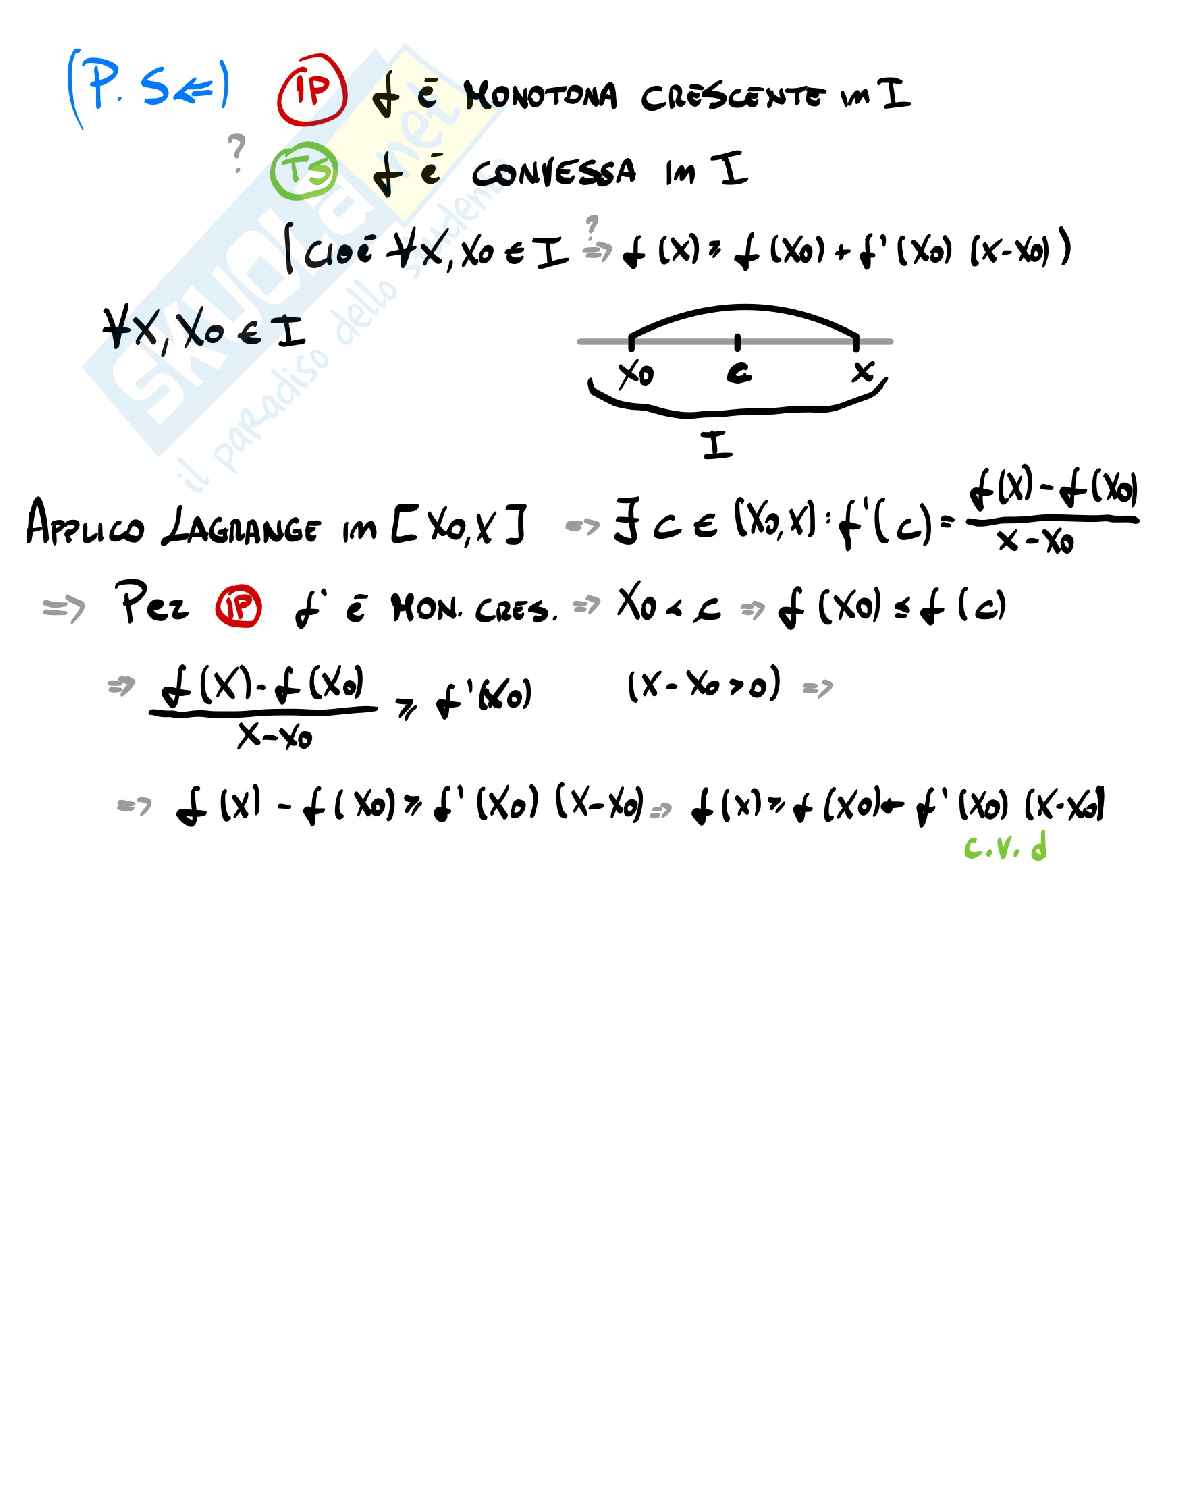 (P. S⇐) IP f è MONOTONA CRESCENTE in I
? TS f è CONVESSA in I
(cioè ∀x, x0 ∈ I ?⇒ f(x) ≥ f(x0) + f'(x0) (x-x0))
∀x, x0 ∈ I
x0 c x
I
APPLICO LAGRANGE in [x0, x] ⇒ ∃ c ∈ (x0, x) : f'(c) = (f(x) - f(x0)) / (x - x0)
⇒ Per IP f' è MON. CRES. ⇒ x0 < c ⇒ f(x0) ≤ f(c)
⇒ (f(x) - f(x0)) / (x - x0) ≥ f'(x0) (x - x0 > 0) ⇒
⇒ f(x) - f(x0) ≥ f'(x0) (x-x0) ⇒ f(x) ≥ f(x0) + f'(x0) (x-x0)
c.v.d
SKUOLA.net
il paradiso dello studente